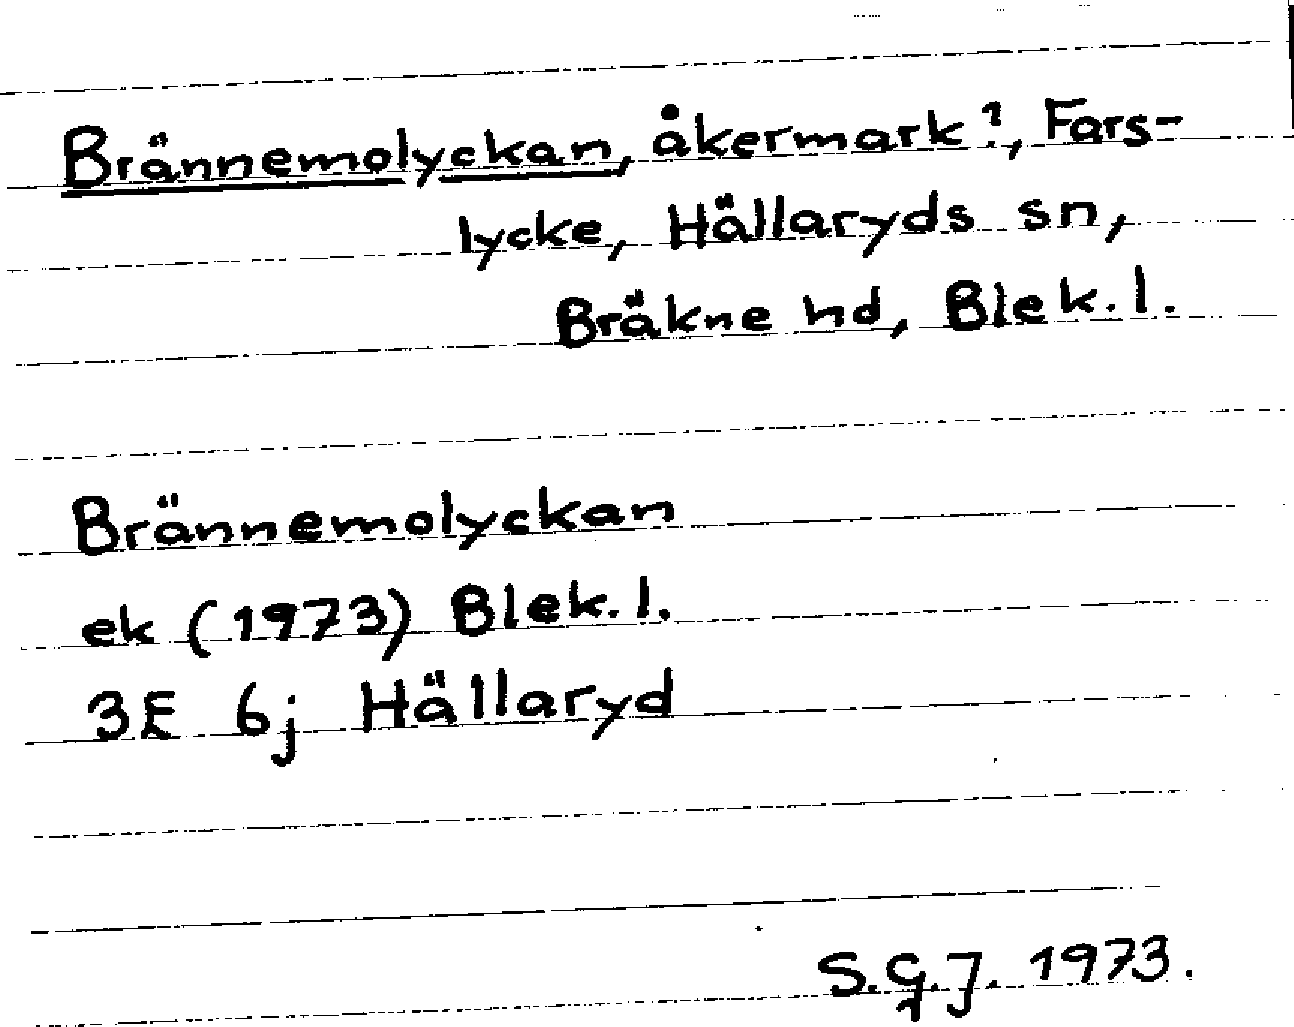 Brännemolyckan, åkermark?, Fars-
lycke, Hällaryds sn,
Bräkne hd, Blek. l.
Brännemolyckan
ek (1973) Blek. l.
3E 6j Hällaryd
S.G.J. 1973.